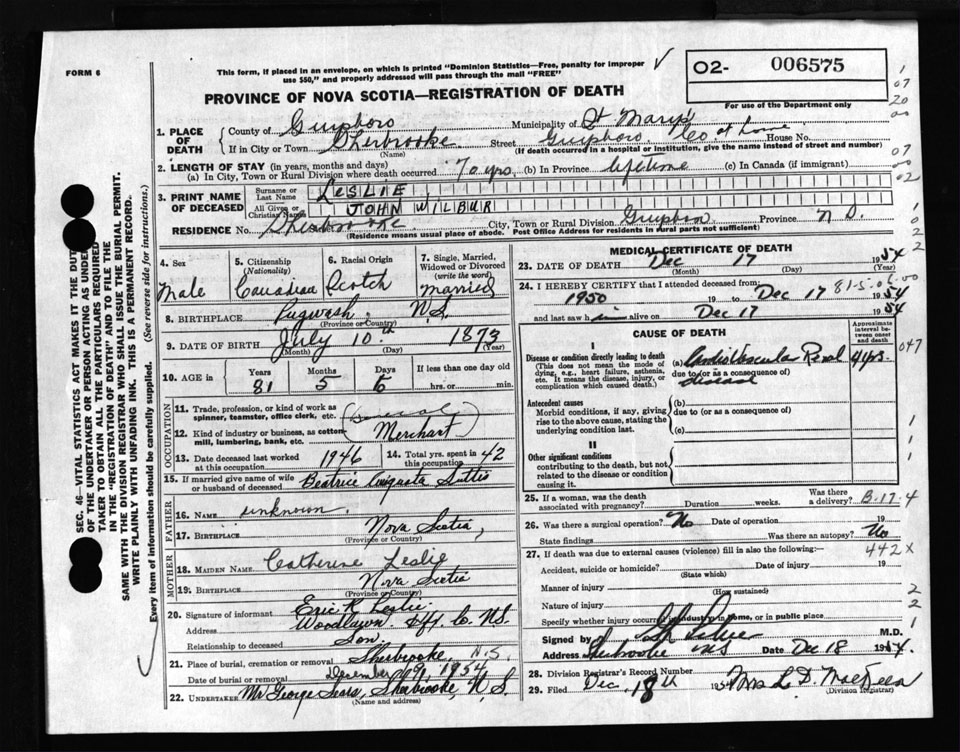 FORM 6
This form, if placed in an envelope, on which is printed "Dominion Statistics—Free, penalty for improper
use $50," and properly addressed will pass through the mail "FREE"
O2- 006575
For use of the Department only
PROVINCE OF NOVA SCOTIA—REGISTRATION OF DEATH
1. PLACE OF DEATH
County of Guysboro Municipality of St Marys
If in City or Town Sherbrooke Street Guysboro Co at home House No.
(Name) (If death occurred in a hospital or institution, give the name instead of street and number)
2. LENGTH OF STAY (in years, months and days)
(a) In City, Town or Rural Division where death occurred 70 yrs. (b) In Province lifetime (c) In Canada (if immigrant)
3. PRINT NAME OF DECEASED
Surname or Last Name LESLIE
All Given or Christian Names JOHN WILBUR
RESIDENCE No. Sherbrooke City, Town or Rural Division Province
(Residence means usual place of abode. Post Office Address for residents in rural parts not sufficient)
4. Sex
Male
5. Citizenship
(Nationality)
Canadian
6. Racial Origin
Scotch
7. Single, Married, Widowed or Divorced
(write the word)
married
8. BIRTHPLACE Pugwash, N.S.
(Province or Country)
9. DATE OF BIRTH July 10th 1873
(Month) (Day) (Year)
10. AGE in Years Months Days If less than one day
81 5 6 hrs. or min.
OCCUPATION
11. Trade, profession, or kind of work as
spinner, teamster, office clerk, etc. (General
12. Kind of industry or business, as cotton
mill, lumbering, bank, etc. Merchant)
13. Date deceased last worked
at this occupation 1946
14. Total yrs. spent in
this occupation 42
15. If married give name of wife
or husband of deceased Beatrice Augusta
FATHER
16. NAME unknown.
17. BIRTHPLACE Nova Scotia,
(Province or Country)
MOTHER
18. MAIDEN NAME Catherine Leslie
19. BIRTHPLACE Nova Scotia
(Province or Country)
20. Signature of informant Eric R Leslie.
Address Woodlawn. Hfx Co. N.S.
Relationship to deceased Son.
21. Place of burial, cremation or removal Sherbrooke, N.S.
Date of burial or removal December 19, 1954
22. UNDERTAKER Mr George Sears, Sherbrooke N.S.
(Name and address)
MEDICAL CERTIFICATE OF DEATH
23. DATE OF DEATH Dec 17 1954
(Month) (Day) (Year)
24. I HEREBY CERTIFY that I attended deceased from:
1950 19 to Dec 17 1954
and last saw him alive on Dec 17 1954
CAUSE OF DEATH
Approximate interval between onset and death
I
Disease or condition directly leading to death
(This does not mean the mode of dying, e.g., heart failure, asthenia, etc. It means the disease, injury, or complication which caused death.)
(a) Cardiovascular Renal 4 yrs.
due to (or as a consequence of)
disease
Antecedent causes
Morbid conditions, if any, giving rise to the above cause, stating the underlying condition last.
(b)
due to (or as a consequence of)
(c)
II
Other significant conditions
contributing to the death, but not related to the disease or condition causing it.
25. If a woman, was the death
associated with pregnancy? Duration weeks. Was there a delivery? B-17-4
26. Was there a surgical operation? No Date of operation 19
State findings Was there an autopsy? No
27. If death was due to external causes (violence) fill in also the following:— 442X
Accident, suicide or homicide? Date of injury 19
(State which)
Manner of injury
(How sustained)
Nature of injury
Specify whether injury occurred in industry, in home, or in public place
Signed by M.D.
Address Sherbrooke NS Date Dec 18 1954.
28. Division Registrar's Record Number
29. Filed Dec. 18th 1954 Mrs L. D. MacKeen
(Division Registrar)
SEC. 46—VITAL STATISTICS ACT MAKES IT THE DUTY
OF THE UNDERTAKER OR PERSON ACTING AS UNDER-
TAKER TO OBTAIN ALL THE PARTICULARS REQUIRED
IN THE "REGISTRATION OF DEATH" AND TO FILE THE
SAME WITH THE DIVISION REGISTRAR WHO SHALL ISSUE THE BURIAL PERMIT.
WRITE PLAINLY WITH UNFADING INK. THIS IS A PERMANENT RECORD.
Every item of information should be carefully supplied. (See reverse side for instructions.)